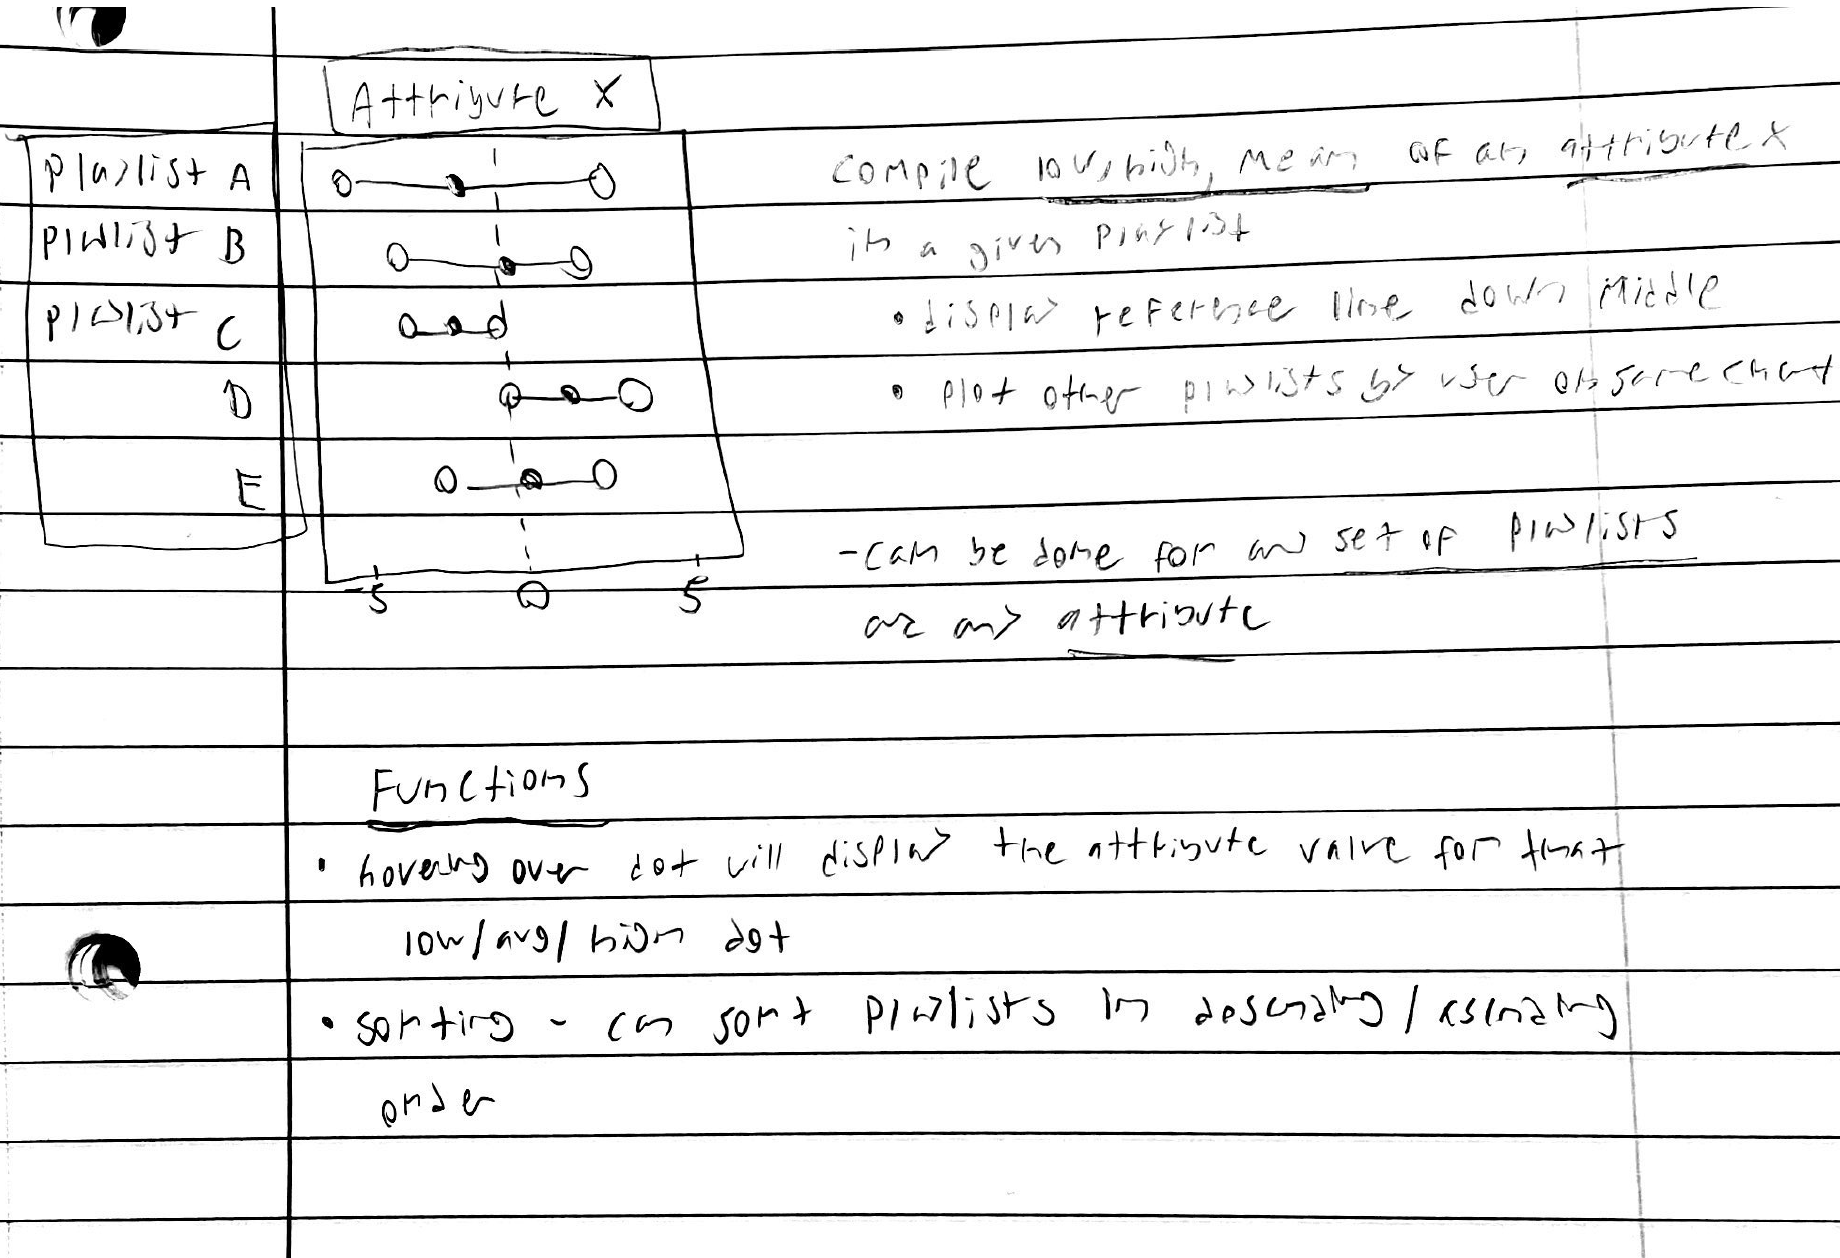 Attribute X
Playlist A
Playlist B
Playlist C
D
E
-5 0 5
compile low, high, mean of an attribute x
in a given playlist
• display reference line down middle
• plot other playlists by user on same chart
- can be done for any set of playlists
or any attribute
Functions
• hovering over dot will display the attribute value for that
low/avg/high dot
• sorting - can sort playlists in descending/ascending
order